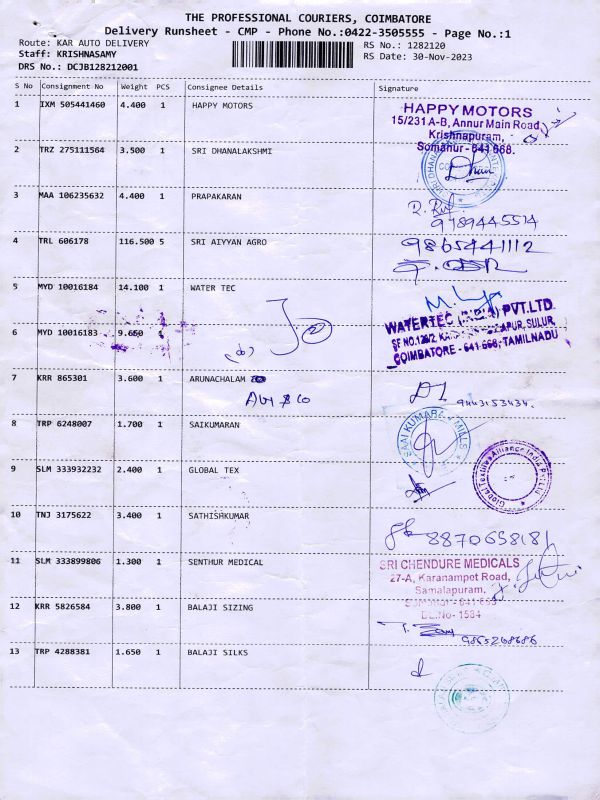 THE PROFESSIONAL COURIERS, COIMBATORE
Delivery Runsheet - CMP - Phone No.:0422-3505555 - Page No.:1
Route: KAR AUTO DELIVERY
RS No.: 1282120
Staff: KRISHNASAMY
RS Date: 30-Nov-2023
DRS No.: DCJB128212001
S No Consignment No Weight PCS Consignee Details Signature
1 IXM 505441460 4.400 1 HAPPY MOTORS
HAPPY MOTORS
15/231 A-B, Annur Main Road
Krishnapuram,
Somanur - 641 668.
2 TRZ 275111564 3.500 1 SRI DHANALAKSHMI
3 MAA 106235632 4.400 1 PRAPAKARAN
9789445514
4 TRL 606178 116.500 5 SRI AIYYAN AGRO
9865441112
5 MYD 10016184 14.100 1 WATER TEC
WATERTEC (INDIA) PVT.LTD.
COIMBATORE - 641 668, TAMILNADU
6 MYD 10016183 9.650
7 KRR 865301 3.600 1 ARUNACHALAM
9443153434.
8 TRP 6248007 1.700 1 SAIKUMARAN
9 SLM 333932232 2.400 1 GLOBAL TEX
Global Textiles Alliance India Pvt Ltd
10 TNJ 3175622 3.400 1 SATHISHKUMAR
8870658181
11 SLM 333899806 1.300 1 SENTHUR MEDICAL
SRI CHENDURE MEDICALS
27-A, Karanampet Road,
Samalapuram,
Somanur - 641 663
DL.No- 1584
12 KRR 5826584 3.800 1 BALAJI SIZING
9865268686
13 TRP 4288381 1.650 1 BALAJI SILKS